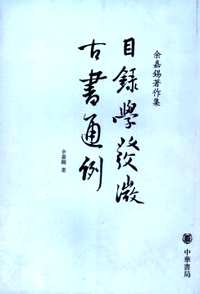 余嘉錫著作集
目録學發微
古書通例
余嘉錫 著
中華書局